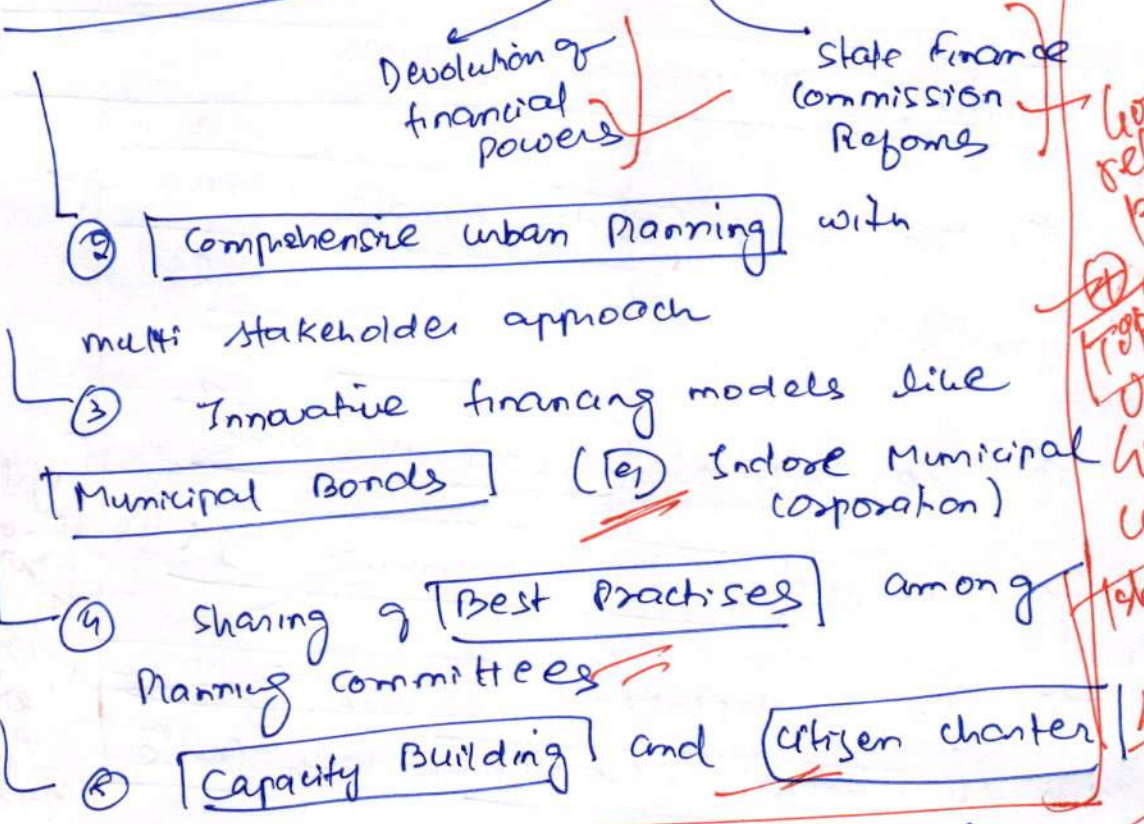 Devolution of
financial
powers
State Finance
Commission
Reforms
② Comprehensive urban Planning with
multi stakeholder approach
③ Innovative financing models like
Municipal Bonds (eg Indore Municipal
Corporation)
④ Sharing of Best Practises among
Planning committees
⑤ Capacity Building and Citizen charter